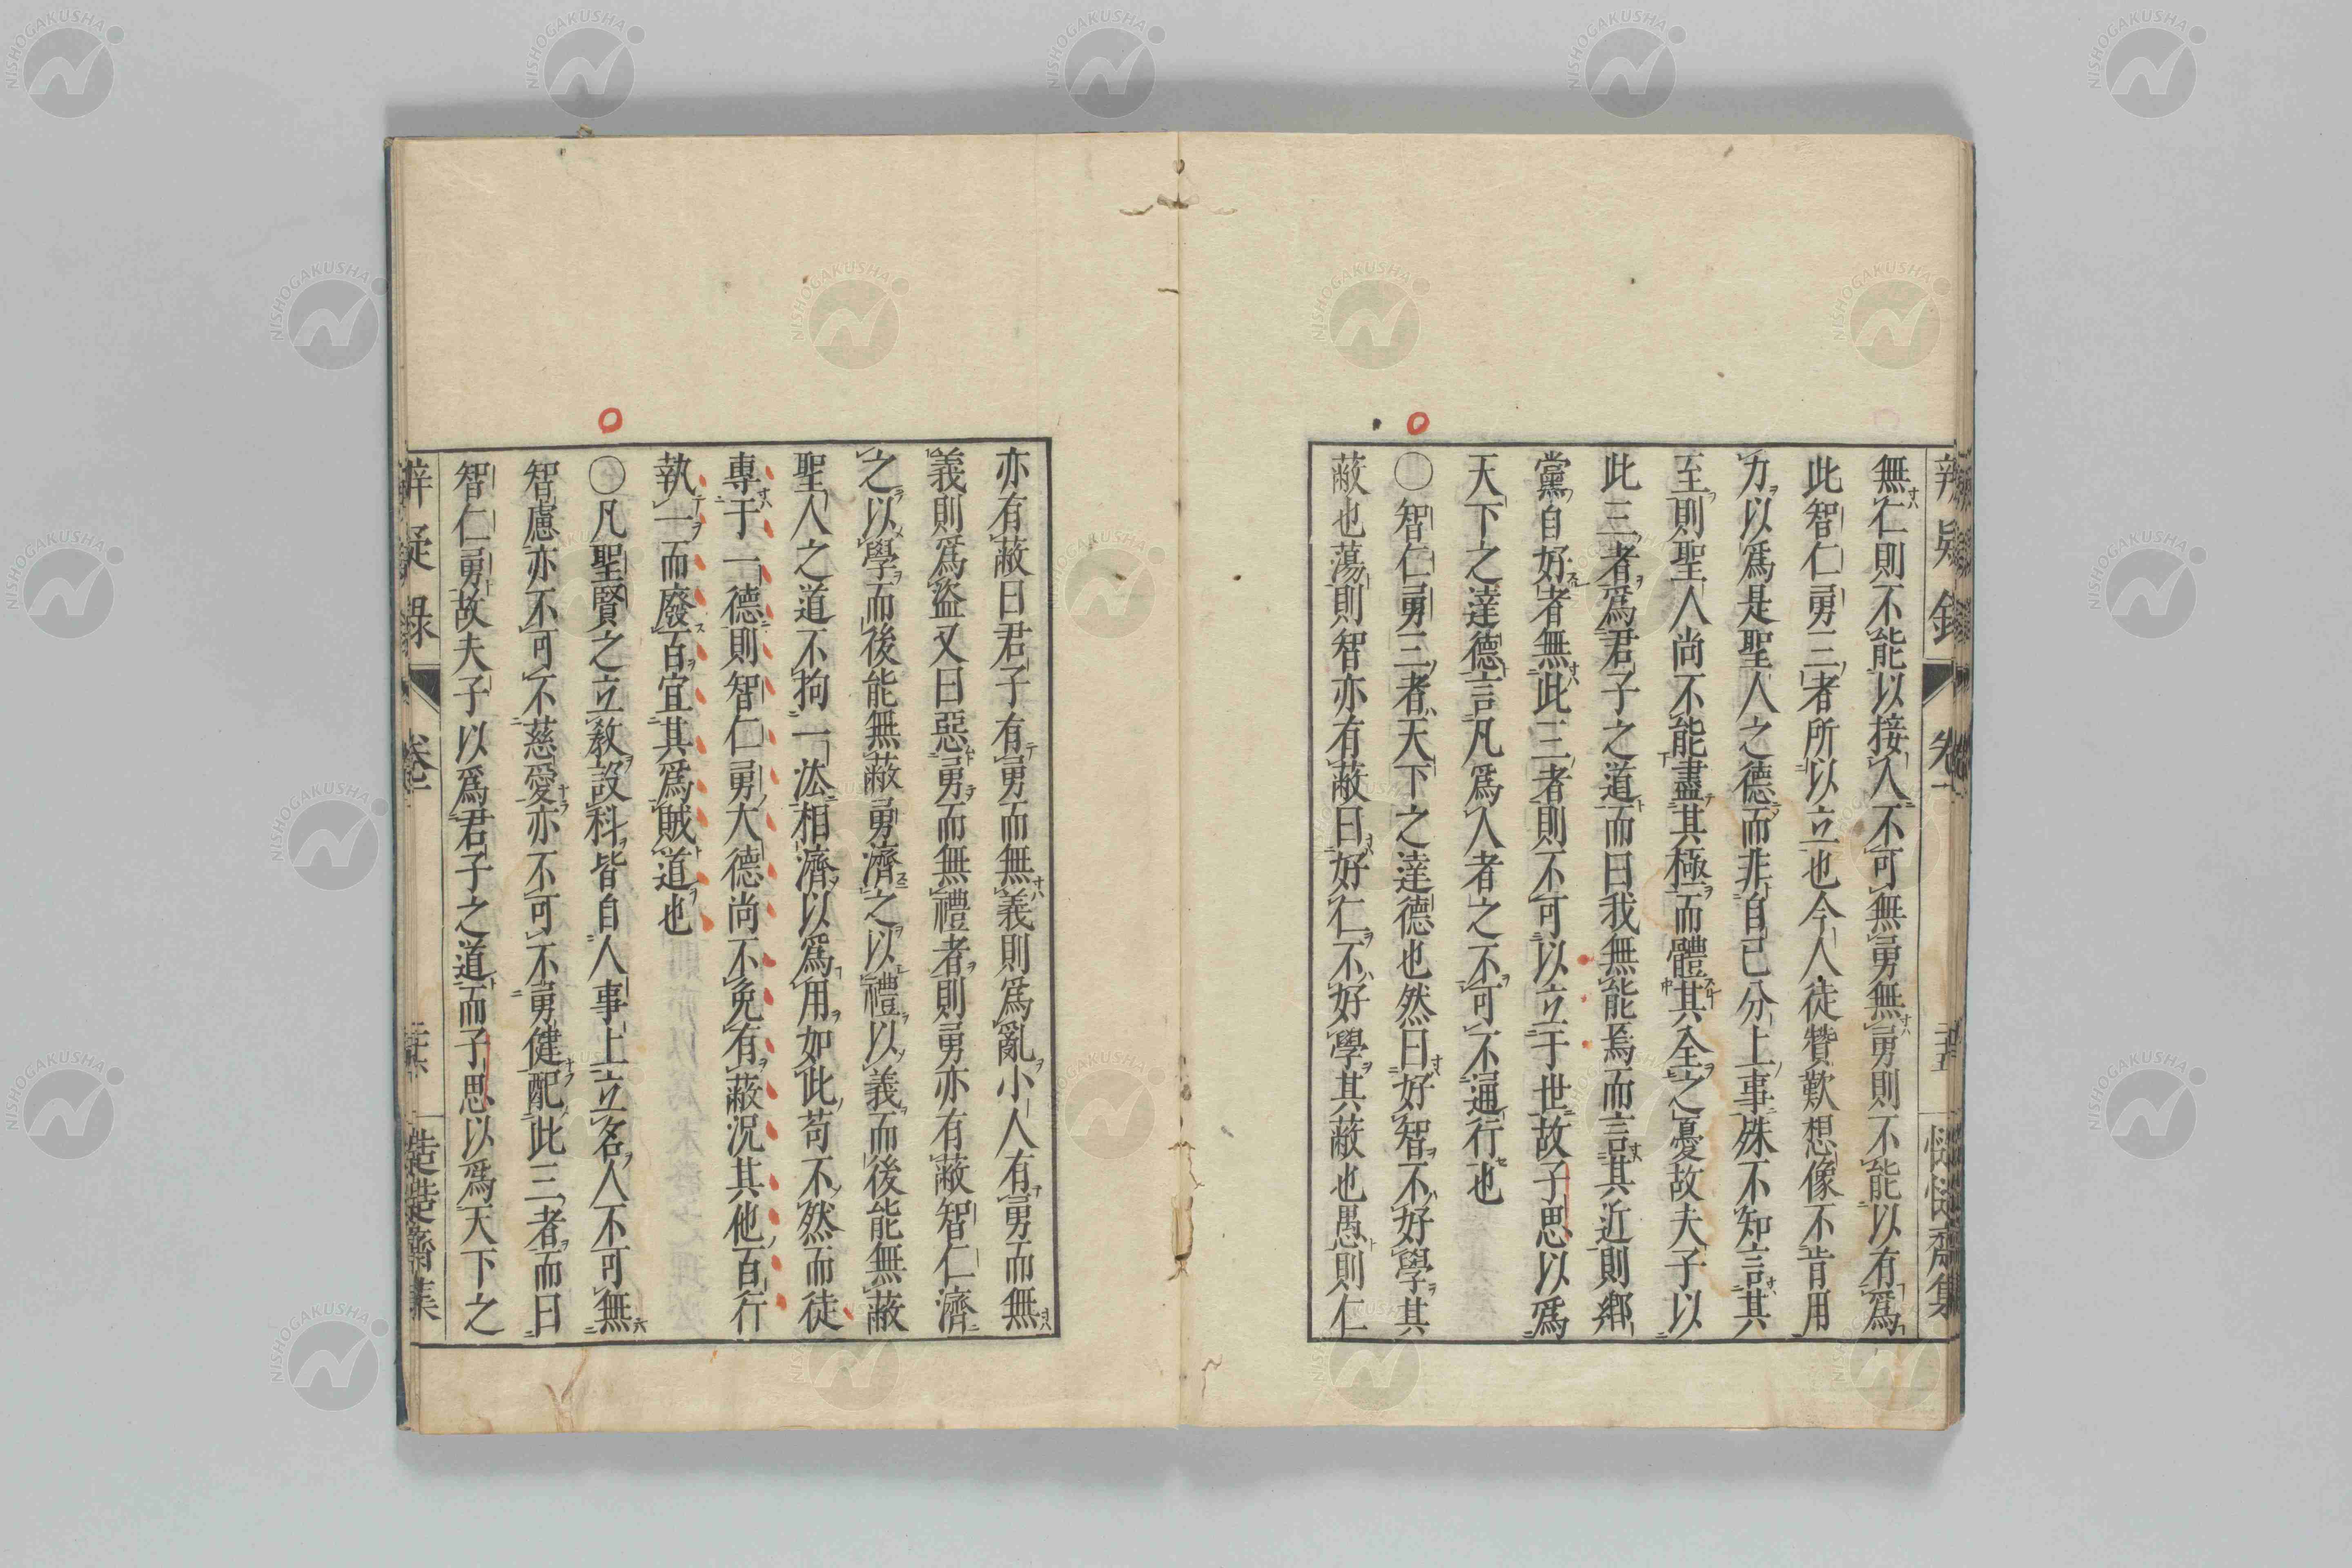 無仁則不能以接人不可無勇無勇則不能以有爲
此智仁勇三者所以立也今人徒贊歎想像不肯用
力以爲是聖人之德而非自己分上事殊不知言其
至則聖人尚不能盡其極而體其全之憂故夫子以
此三者爲君子之道而曰我無能焉而言其近則鄉
黨自好者無此三者則不可以立于世故子思以爲
天下之達德言凡爲人者之不可不通行也
○智仁勇三者天下之達德也然曰好智不好學其
蔽也蕩則智亦有蔽曰好仁不好學其蔽也愚則仁
亦有蔽曰君子有勇而無義則爲亂小人有勇而無
義則爲盜又曰惡勇而無禮者則勇亦有蔽智仁濟
之以學而後能無蔽勇濟之以禮以義而後能無蔽
聖人之道不拘一法相濟以爲用如此苟不然而徒
專于一德則智仁勇大德尚不免有蔽況其他百行
執一而廢百宜其爲賊道也
○凡聖賢之立教設科皆自人事上立名人不可無
智慮亦不可不慈愛亦不可不勇健配此三者而曰
智仁勇故夫子以爲君子之道而子思以爲天下之
辨疑錄
卷二
NISHOGAKUSHA